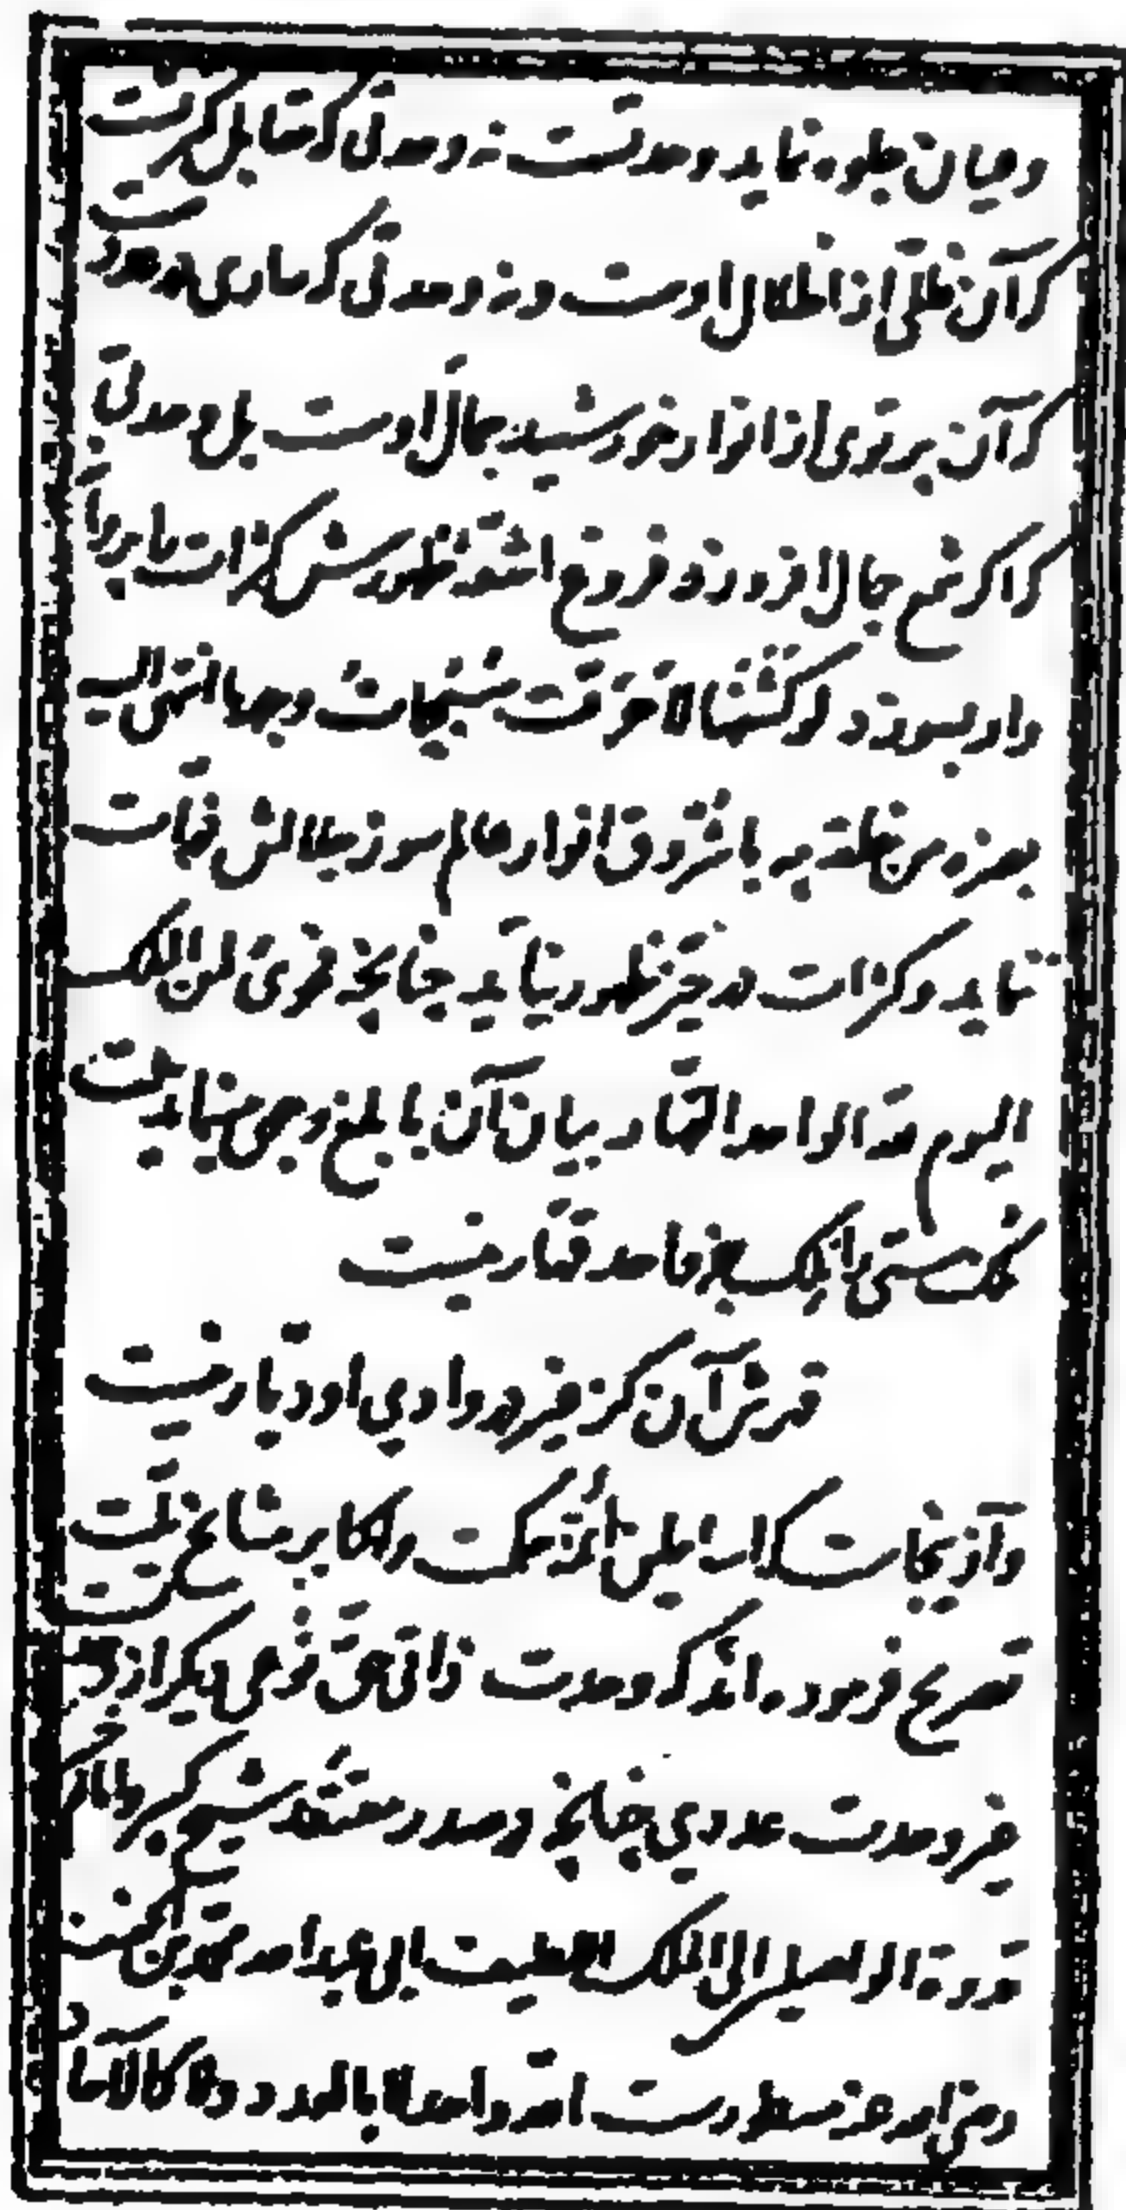 و عیان جلوه نماید وحدتست نه وحدتی که مقابل کثرتست
که آن ظلی از اظلال اوست و نه وحدتی که ساری در
که آن پرتوی از انوار خورشید جمال اوست بل وحدتی
که اگر شمع جمال افروزد و فروغ اشعه ظهورش کثرات را پروانه
وار بسوزد لو کشفها لاحرقت سبحات وجهه ما انتهی الیه
بصره من خلقه چه با شروق انوار عالم سوز جلالش
نماید و کثرات در حیز ظهور نیاید چنانچه فحوی لمن الملک
الیوم لله الواحد القهار بیان آن بابلغ وجهی مینماید
هستی را ملک جز واحد قهار نیست
آن کز غیر در وادی او دیار نیست
و ازینجاست که اساطین ائمه کمت و اکابر مشایخ ملت
تصریح فرموده‌اند که وحدت ذاتی حق نوعی دیگر از
غیر وحدت عددی چنانچه در صدر معتقد شیخ کبیر و امام
قدوة الواصلین الی الملک اللطیف ابی عبد الله محمد بن
رضی الله عنه مسطورست الله واحد لا بالعدد و لا کالآحاد